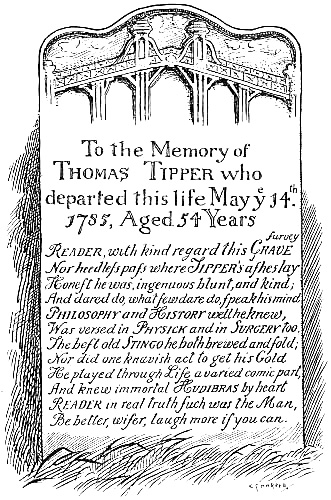 To the Memory of
THOMAS TIPPER who
departed this life May yͤ 14.th
1785, Aged 54 Years
READER, with kind regard this GRAVE survey
Nor heedleſs paſs where TIPPER'S aſhes lay
Honeſt he was, ingenuous blunt, and kind;
And dared do, what few dare do, ſpeak his mind.
PHILOSOPHY and HISTORY well he knew,
Was versed in PHYSICK and in SURGERY too.
The beſt old STINGO he both brewed and ſold;
Nor did one knavish act to get his Gold
He played through Life a varied comic part,
And knew immortal HUDIBRAS by heart
READER in real truth ſuch was the Man,
Be better, wiſer, laugh more if you can.